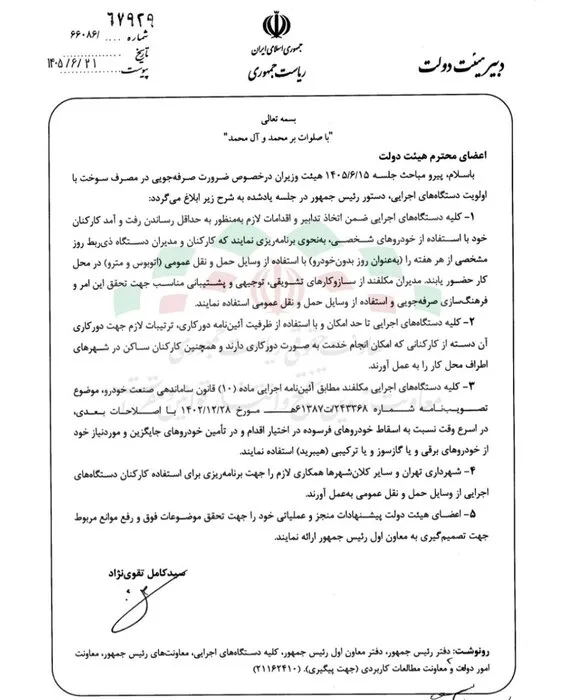 ۶۷۹۲۹
شماره ۶۶۰۸۶/
تاریخ ۱۴۰۵/۶/۲۱
پیوست
جمهوری اسلامی ایران
ریاست جمهوری
دبیر هیئت دولت
بسمه تعالی
"با صلوات بر محمد و آل محمد"
اعضای محترم هیئت دولت
باسلام، پیرو مباحث جلسه ۱۴۰۵/۶/۱۵ هیئت وزیران درخصوص ضرورت صرفه‌جویی در مصرف سوخت با
اولویت دستگاه‌های اجرایی، دستور رئیس جمهور در جلسه یادشده به شرح زیر ابلاغ می‌گردد:
۱- کلیه دستگاه‌های اجرایی ضمن اتخاذ تدابیر و اقدامات لازم به‌منظور به حداقل رساندن رفت و آمد کارکنان
خود با استفاده از خودروهای شخصی، به‌نحوی برنامه‌ریزی نمایند که کارکنان و مدیران دستگاه ذی‌ربط روز
مشخصی از هر هفته را (به‌عنوان روز بدون‌خودرو) با استفاده از وسایل حمل و نقل عمومی (اتوبوس و مترو) در محل
کار حضور یابند. مدیران مکلفند از سازوکارهای تشویقی، توجیهی و پشتیبانی مناسب جهت تحقق این امر و
فرهنگ‌سازی صرفه‌جویی و استفاده از وسایل حمل و نقل عمومی استفاده نمایند.
۲- کلیه دستگاه‌های اجرایی تا حد امکان و با استفاده از ظرفیت آئین‌نامه دورکاری، ترتیبات لازم جهت دورکاری
آن دسته از کارکنانی که امکان انجام خدمت به صورت دورکاری دارند و همچنین کارکنان ساکن در شهرهای
اطراف محل کار را به عمل آورند.
۳- کلیه دستگاه‌های اجرایی مکلفند مطابق آئین‌نامه اجرایی ماده (۱۰) قانون ساماندهی صنعت خودرو، موضوع
تصویب‌نامه شماره ۲۴۳۳۶۸/ت۶۱۳۸۷هـ مورخ ۱۴۰۲/۱۲/۲۸ با اصلاحات بعدی،
در اسرع وقت نسبت به اسقاط خودروهای فرسوده در اختیار اقدام و در تأمین خودروهای جایگزین و موردنیاز خود
از خودروهای برقی و یا گازسوز و یا ترکیبی (هیبرید) استفاده نمایند.
۴- شهرداری تهران و سایر کلان‌شهرها همکاری لازم را جهت برنامه‌ریزی برای استفاده کارکنان دستگاه‌های
اجرایی از وسایل حمل و نقل عمومی به‌عمل آورند.
۵- اعضای هیئت دولت پیشنهادات منجز و عملیاتی خود را جهت تحقق موضوعات فوق و رفع موانع مربوط
جهت تصمیم‌گیری به معاون اول رئیس جمهور ارائه نمایند.
سیدکامل تقوی‌نژاد
رونوشت: دفتر رئیس جمهور، دفتر معاون اول رئیس جمهور، کلیه دستگاه‌های اجرایی، معاونت‌های رئیس جمهور، معاونت
امور دولت و معاونت مطالعات کاربردی (جهت پیگیری). (۲۱۱۶۲۴۱۰)